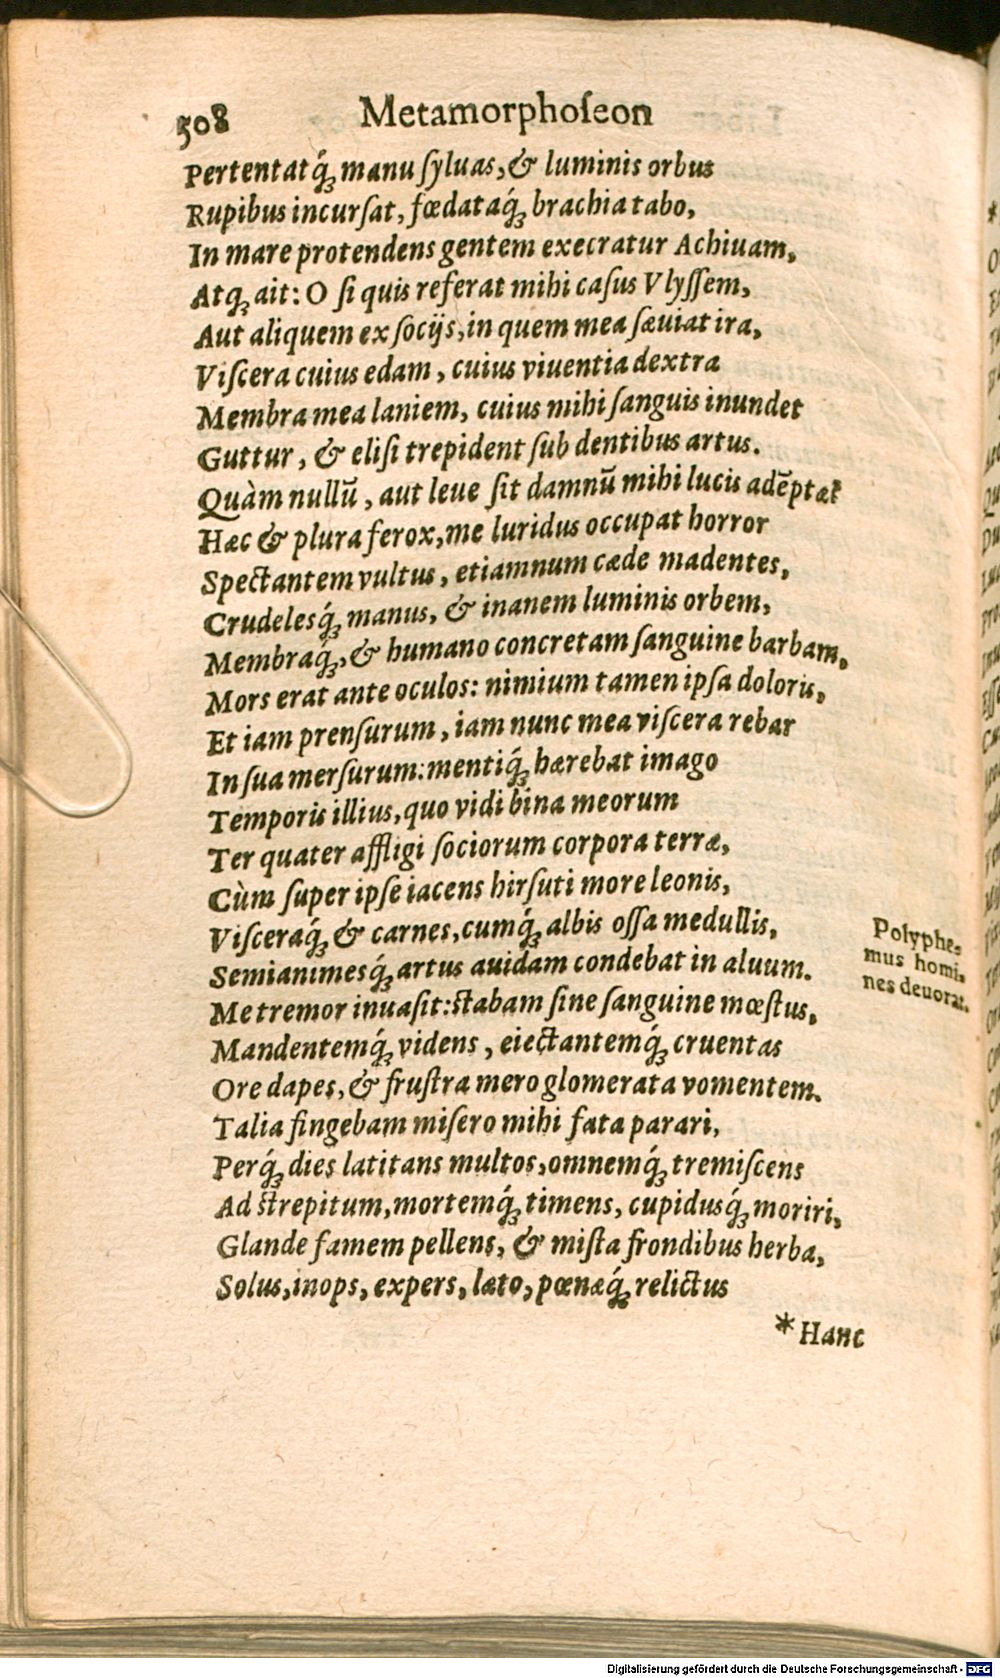 508 Metamorphoſeon
Pertentatq́; manu ſyluas, & luminis orbus
Rupibus incurſat, fœdataq́; brachia tabo,
In mare protendens gentem execratur Achiuam,
Atq; ait: O ſi quis referat mihi caſus Vlyſſem,
Aut aliquem ex ſocijs, in quem mea ſæuiat ira,
Viſcera cuius edam, cuius viuentia dextra
Membra mea laniem, cuius mihi ſanguis inundet
Guttur, & eliſi trepident ſub dentibus artus.
Quàm nullũ, aut leue ſit damnũ mihi lucis adẽptæ?
Hæc & plura ferox, me luridus occupat horror
Spectantem vultus, etiamnum cæde madentes,
Crudelesq́; manus, & inanem luminis orbem,
Membraq́;, & humano concretam ſanguine barbam,
Mors erat ante oculos: nimium tamen ipſa doloris,
Et iam prenſurum, iam nunc mea viſcera rebar
In ſua merſurum: mentiq́; hærebat imago
Temporis illius, quo vidi bina meorum
Ter quater affligi ſociorum corpora terræ,
Cùm ſuper ipſe iacens hirſuti more leonis,
Viſceraq́; & carnes, cumq́; albis oſſa medullis,
Semianimesq́; artus auidam condebat in aluum.
Me tremor inuaſit: ſtabam ſine ſanguine mœſtus,
Mandentemq́; videns, eiectantemq́; cruentas
Ore dapes, & fruſtra mero glomerata vomentem.
Talia fingebam miſero mihi fata parari,
Perq́; dies latitans multos, omnemq́; tremiſcens
Ad ſtrepitum, mortemq́; timens, cupidusq́; moriri,
Glande famem pellens, & miſta frondibus herba,
Solus, inops, expers, læto, pœnæq́; relictus
*Hanc
Polyphe-
mus homi-
nes deuorat.
Digitalisierung gefördert durch die Deutsche Forschungsgemeinschaft - DFG